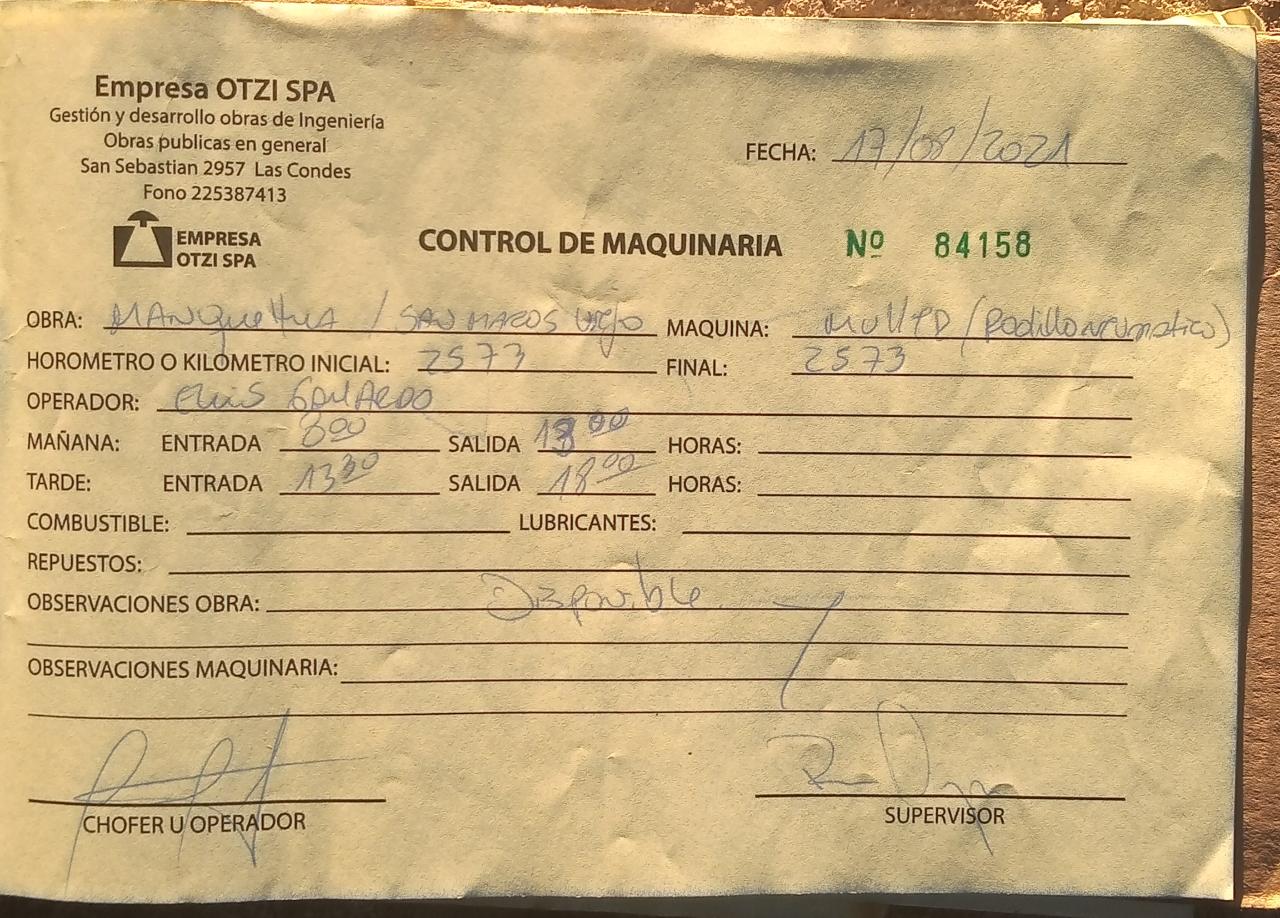 Empresa OTZI SPA
Gestión y desarrollo obras de Ingeniería
Obras publicas en general
San Sebastian 2957 Las Condes
Fono 225387413
FECHA: 17/08/2021
EMPRESA
OTZI SPA
CONTROL DE MAQUINARIA Nº 84158
OBRA: MANqueHua / SAN MARCOS Viejo MAQUINA: (Rodillo neumatico)
HOROMETRO O KILOMETRO INICIAL: 2573 FINAL: 2573
OPERADOR: GALLARDO
MAÑANA: ENTRADA 8 00 SALIDA 13 00 HORAS:
TARDE: ENTRADA 13 30 SALIDA 18 00 HORAS:
COMBUSTIBLE: LUBRICANTES:
REPUESTOS:
OBSERVACIONES OBRA: Disponible
OBSERVACIONES MAQUINARIA:
CHOFER U OPERADOR SUPERVISOR